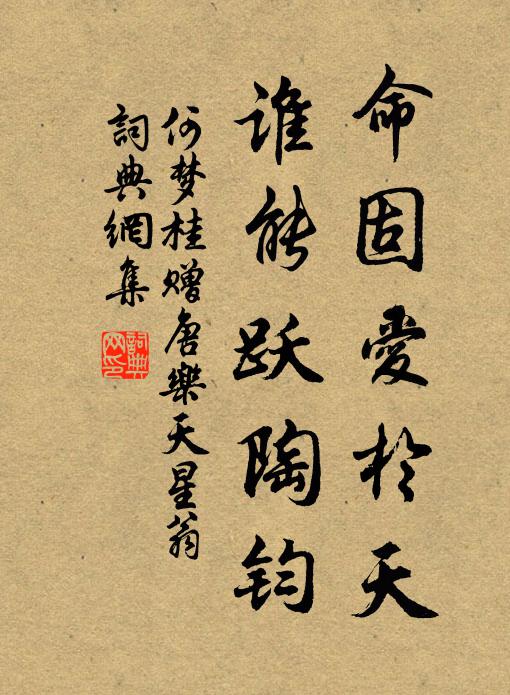 命固愛於天
谁能跃陶钧
何梦桂赠唐樂天星翁
詞典網集
詞典网印